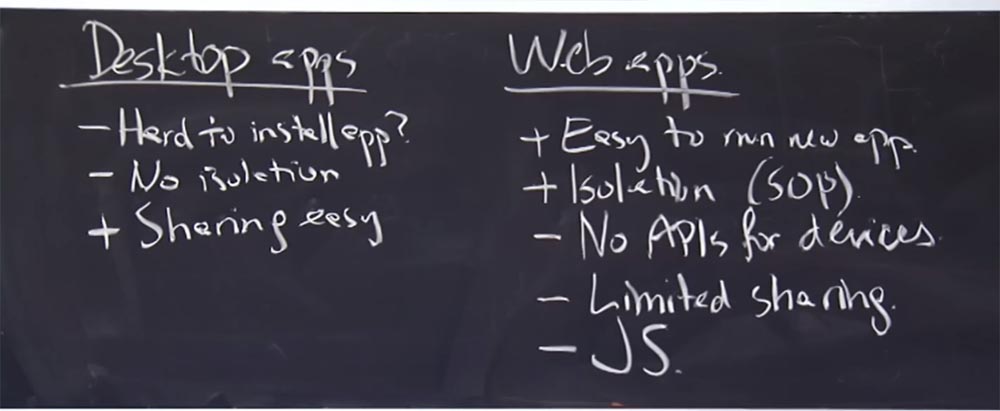 Desktop apps
- Hard to install app?
- No isolation
+ Sharing easy
Web apps.
+ Easy to run new app.
+ Isolation (SOP).
- No APIs for devices.
- Limited sharing.
- JS.